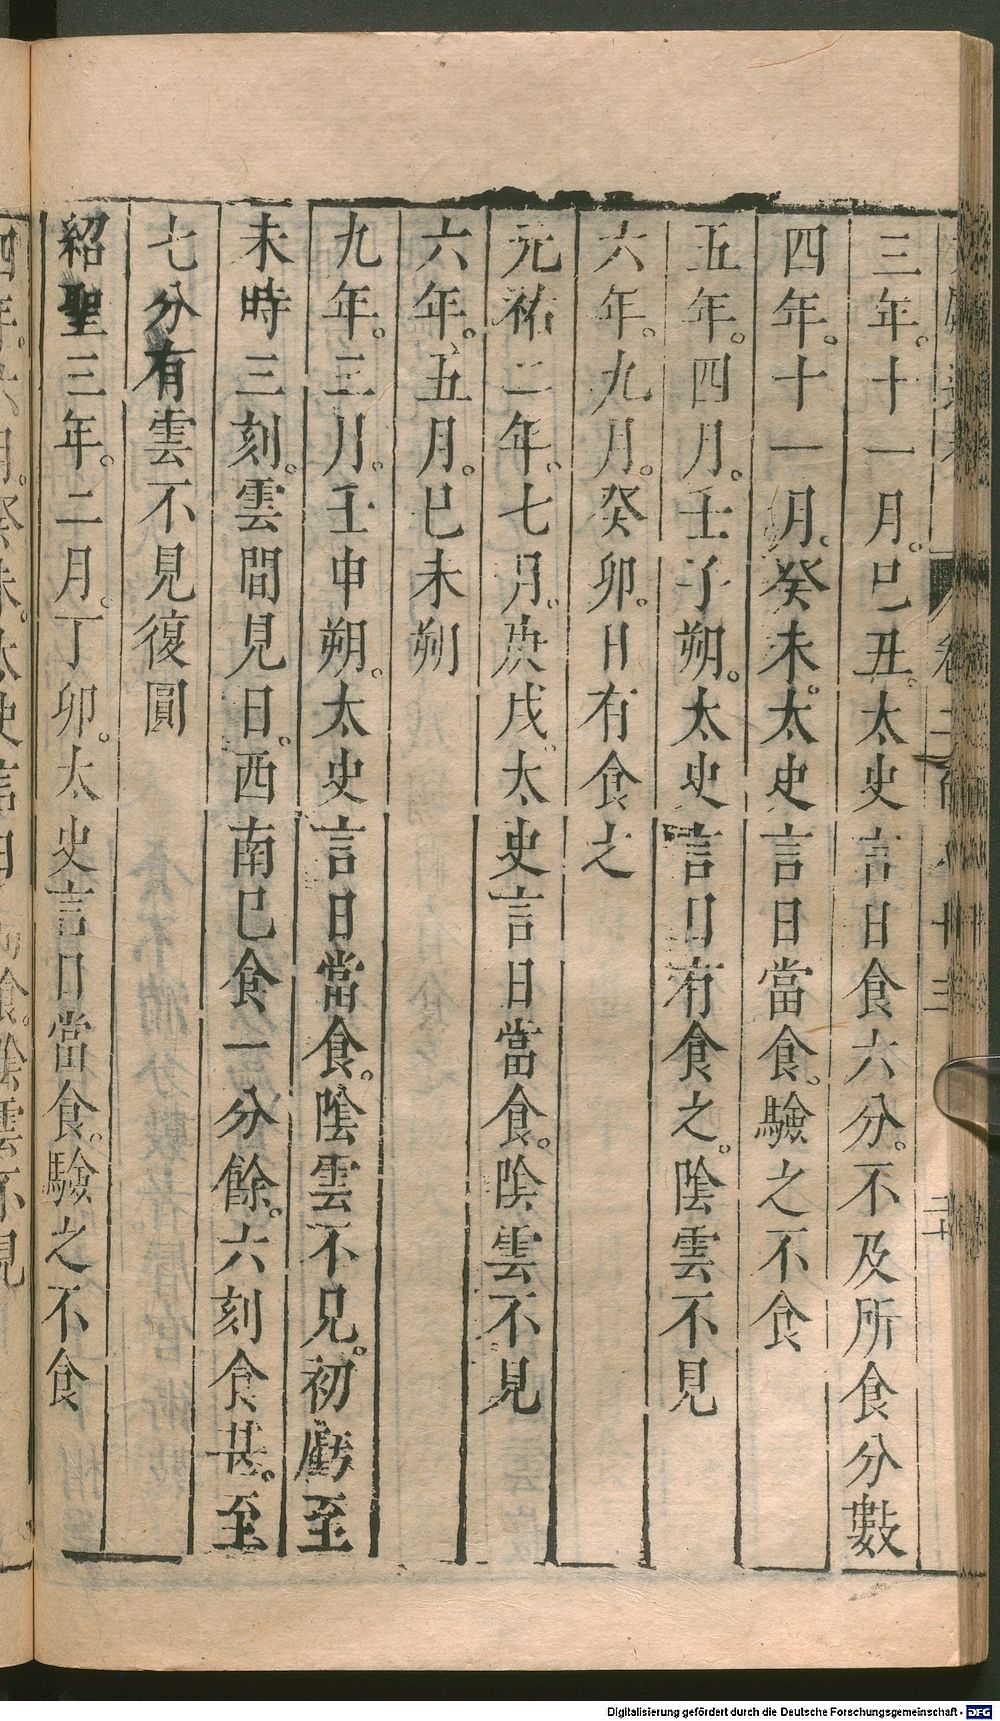 三年。十一月。己丑。太史言日食六分。不及所食分數
四年。十一月。癸未。太史言日當食。驗之不食
五年。四月。壬子朔。太史言日有食之。陰雲不見
六年。九月。癸卯。日有食之
元祐二年。七月。庚戌。太史言日當食。陰雲不見
六年。五月。己未朔
九年。三月。壬申朔。太史言日當食。陰雲不見。初虧至
未時三刻。雲間見日。西南巳食一分餘。六刻食甚。至
七分有雲不見復圓
紹聖三年。二月。丁卯。太史言日當食。驗之不食
Digitalisierung gefördert durch die Deutsche Forschungsgemeinschaft - DFG